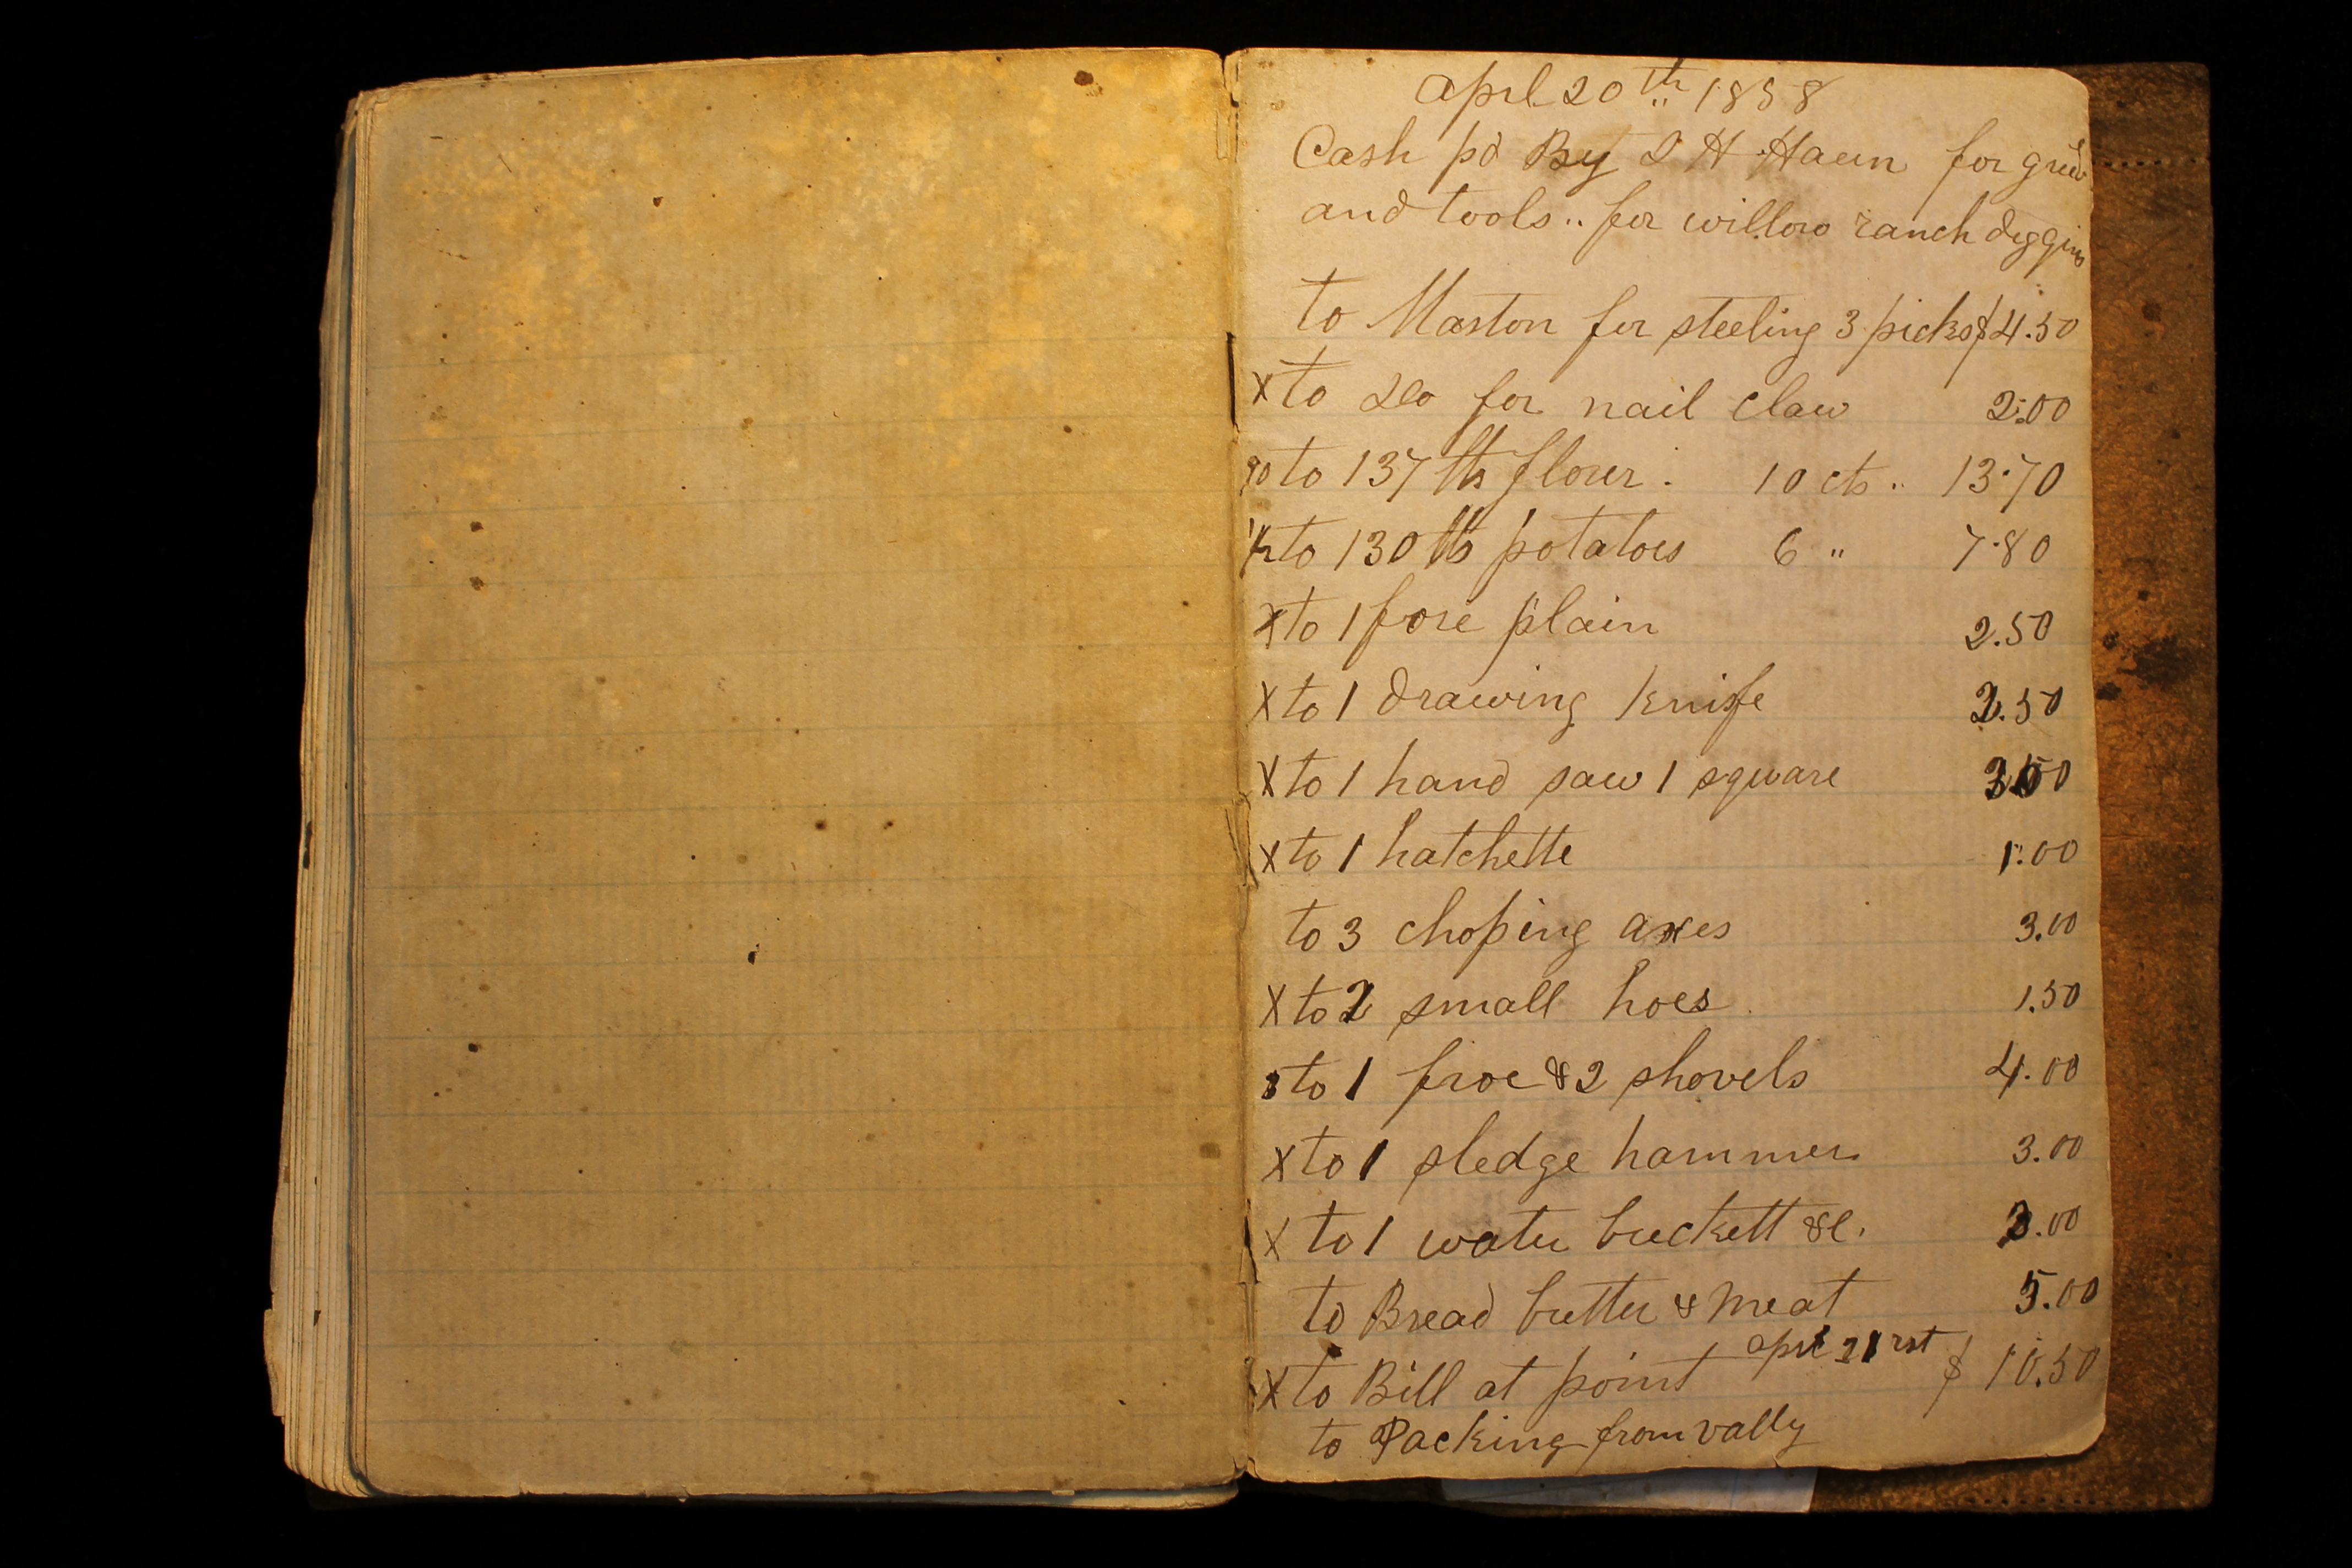 Aprl 20th 1858
Cash pd By D H Haun for grub
and tools .. for willow ranch diggins
to Maston for steeling 3 picks $4.50
X to Do for nail claw 2.00
90 to 137 lbs flour . 10 cts .. 13.70
1/2 to 130 lbs potatoes 6 " 7.80
X to 1 fore plain 2.50
X to 1 drawing knife 2.50
X to 1 hand saw 1 square
X to 1 hatchette 1.00
to 3 choping axes 3.00
X to 2 small hoes 1.50
to 1 froe & 2 shovels 4.00
X to 1 sledge hammer 3.00
X to 1 water buckett &c.
to Bread butter & meat 5.00
aprl 21rst
X to Bill at point $ 10.50
to Packing from vally